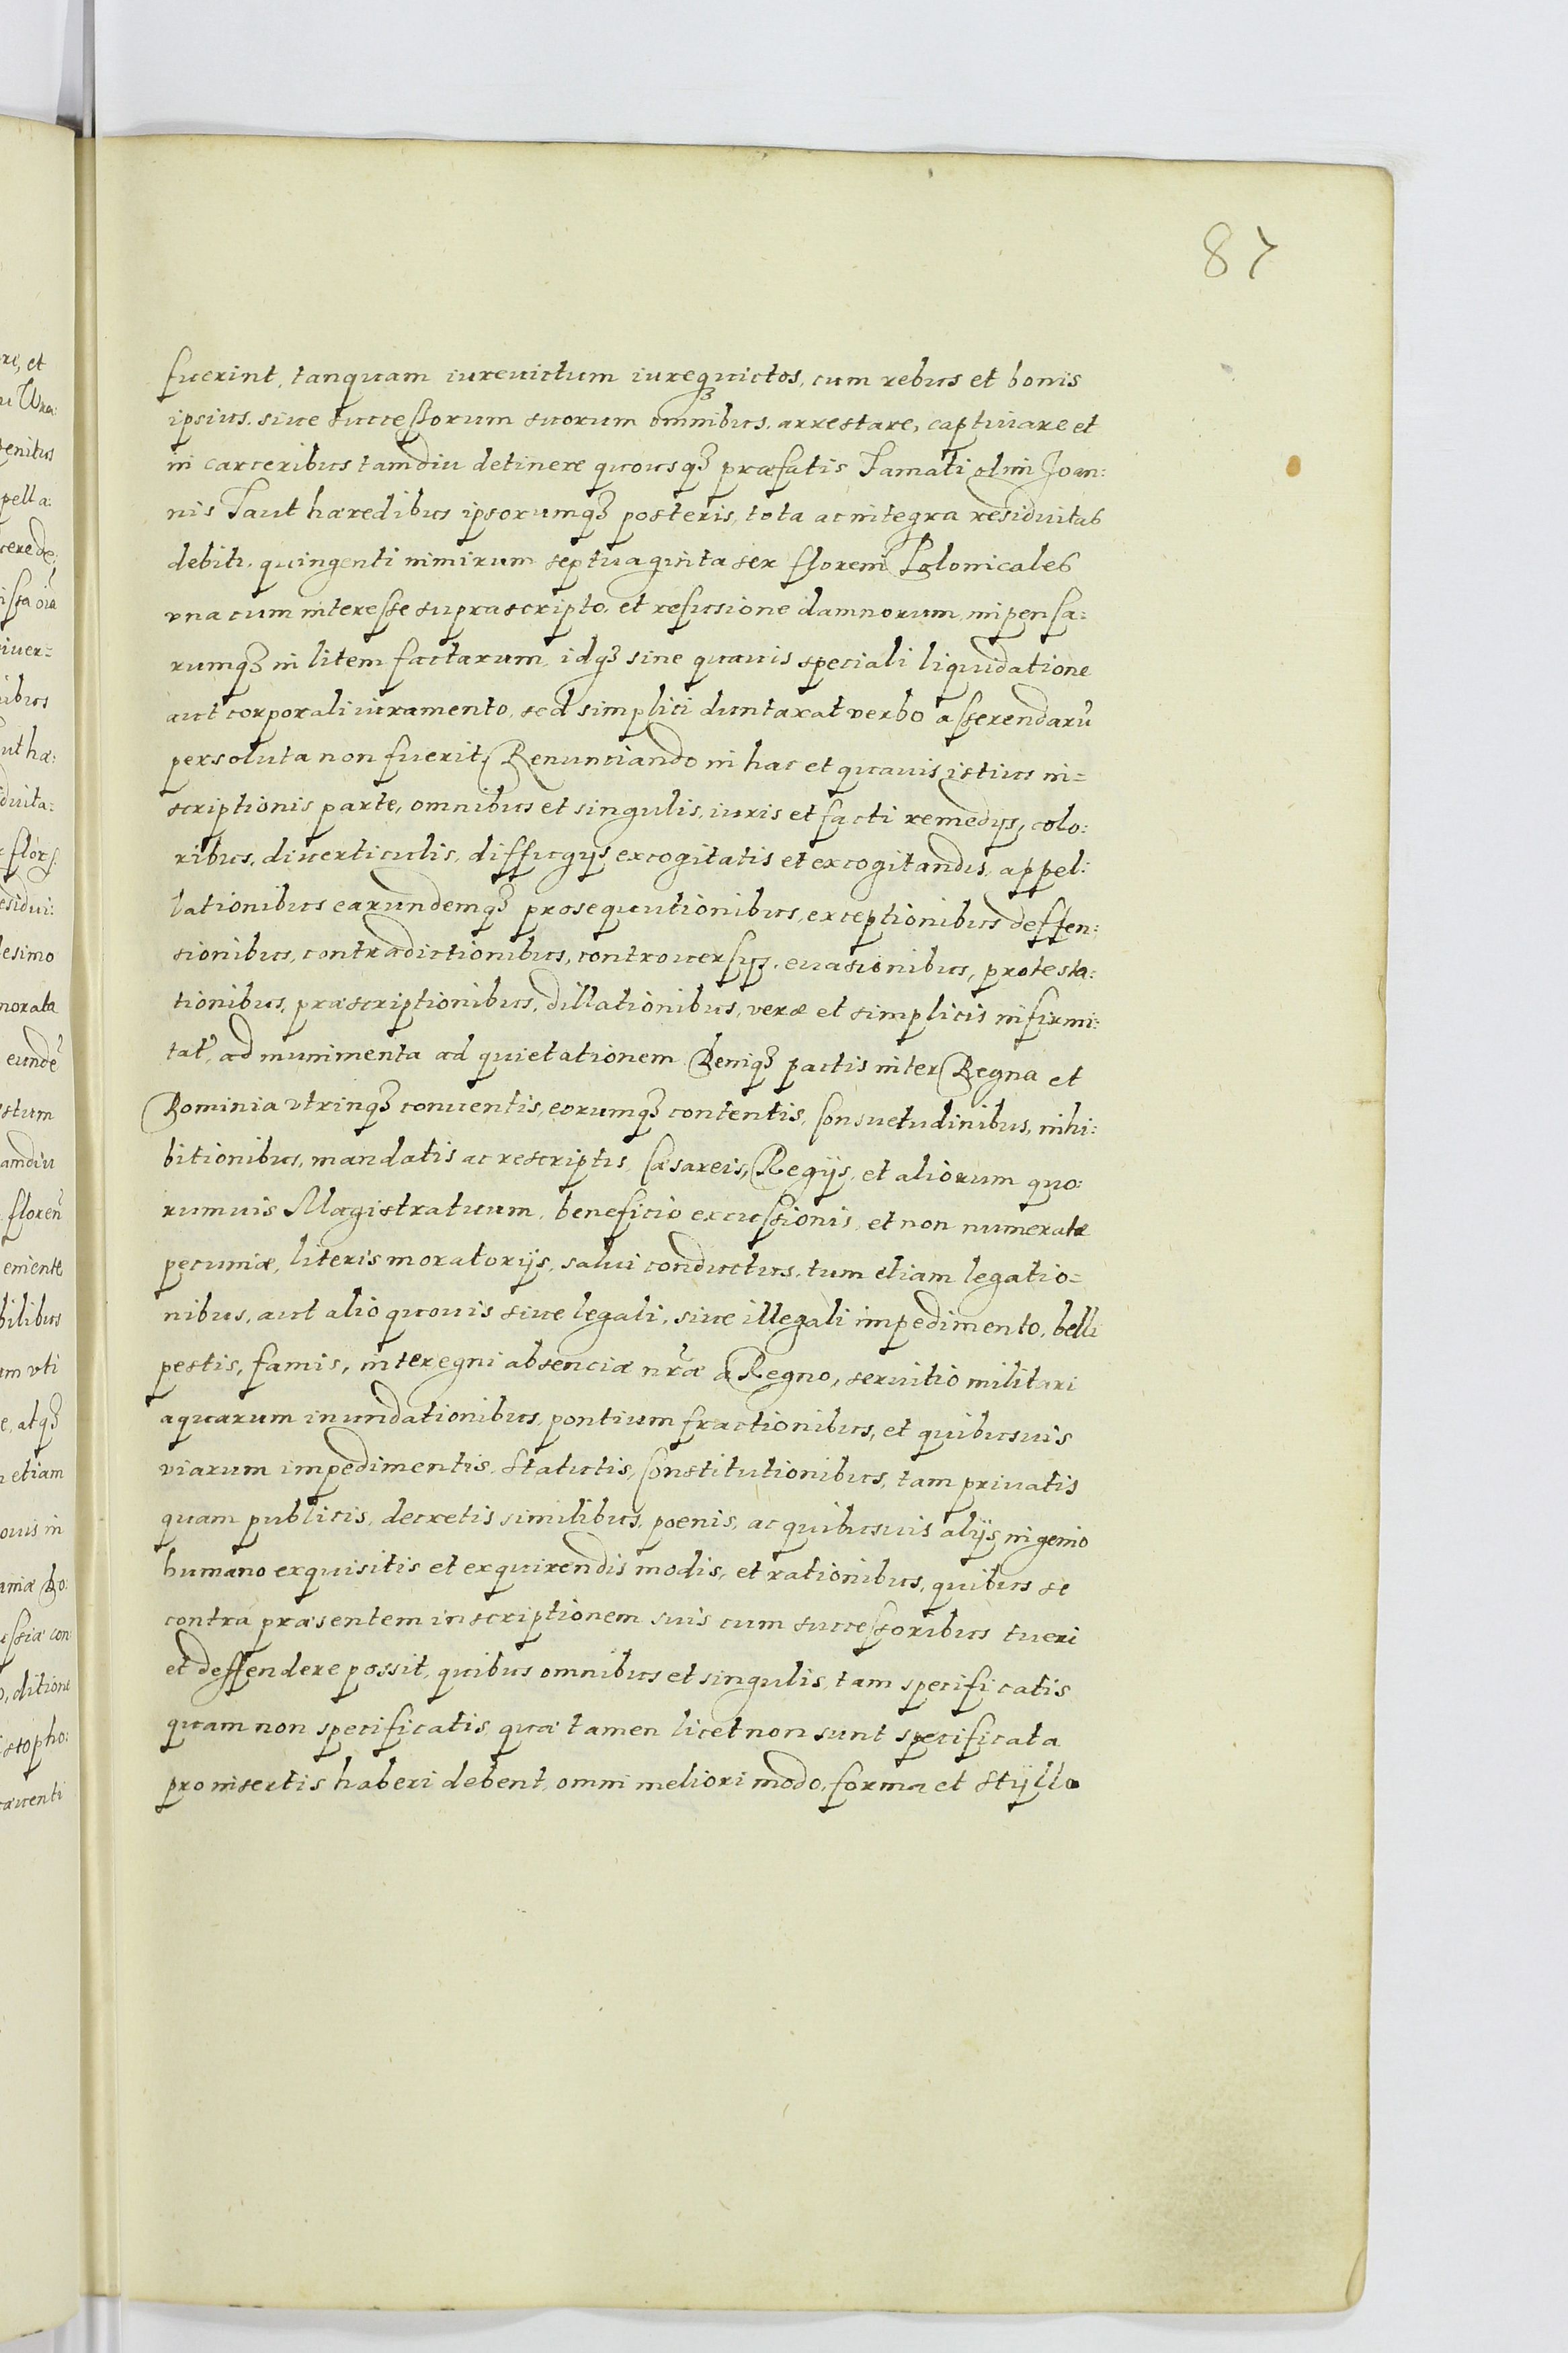 87
fuerint, tanquam iurevictum iureq3 victos, cum rebus et bonis
ipsius, siue successorum suorum omnibus, arrestare, captiuare et
in carceribus tamdiu detinere quousq3 præfatis Famati olim Joan:
nis Taut hæredibus ipsorumq3 posteris, tota ac integra residuitas
debiti, quingenti nimirum septuaginta sex floreni Polonicales
vna cum interesse suprascripto, et refusione damnorum, inpensa:
rumq3 in litem factarum, idq3 sine quauis speciali liquidatione
aut corporali iuramento, sed simplici duntaxat verbo asserendarũ
persoluta non fuerit, Renunciando in hac et quauis istius in=
scriptionis parte, omnibus et singulis, iuris et facti remedijs, colo:
ribus, diuerticulis, diffugijs excogitatis et excogitandis, appel:
lationibus earundemq3 prosequutionibus, exceptionibus deffen:
sionibus, contradictionibus, controuersijs, euasionibus, protesta:
tionibus, præscriptionibus, dillationibus, veræ et simplicis infirmi:
tat, ad munimenta ad quietationem Deniq3 pactis inter Regna et
Dominia vtrinq3 conuentis, eorumq3 contentis, Consuetudinibus, inhi:
bitionibus, mandatis ac rescriptis, Cæsareis, Regijs, et aliorum quo:
rumuis Magistratuum, beneficio excussionis, et non numeratæ
pecuniæ, literis moratorijs, salui conductus, tum etiam legatio=
nibus, aut alio quouis siue legali, siue illegali impedimento, belli
pestis, famis, interegni absenciæ nr̃æ a Regno, seruitio militari
aquarum inundationibus, pontium fractionibus, et quibusuis
viarum impedimentis, Statutis, Constitutionibus, tam priuatis
quam publicis, decretis similibus, poenis, ac quibusuis alijs ingenio
humano exquisitis et exquirendis modis, et rationibus, quibus se
contra præsentem inscriptionem suis cum successoribus tueri
et deffendere possit, quibus omnibus et singulis, tam specificatis
quam non specificatis, quæ tamen licet non sunt specificata
pro insertis haberi debent, omni meliori modo, forma et Stÿllo